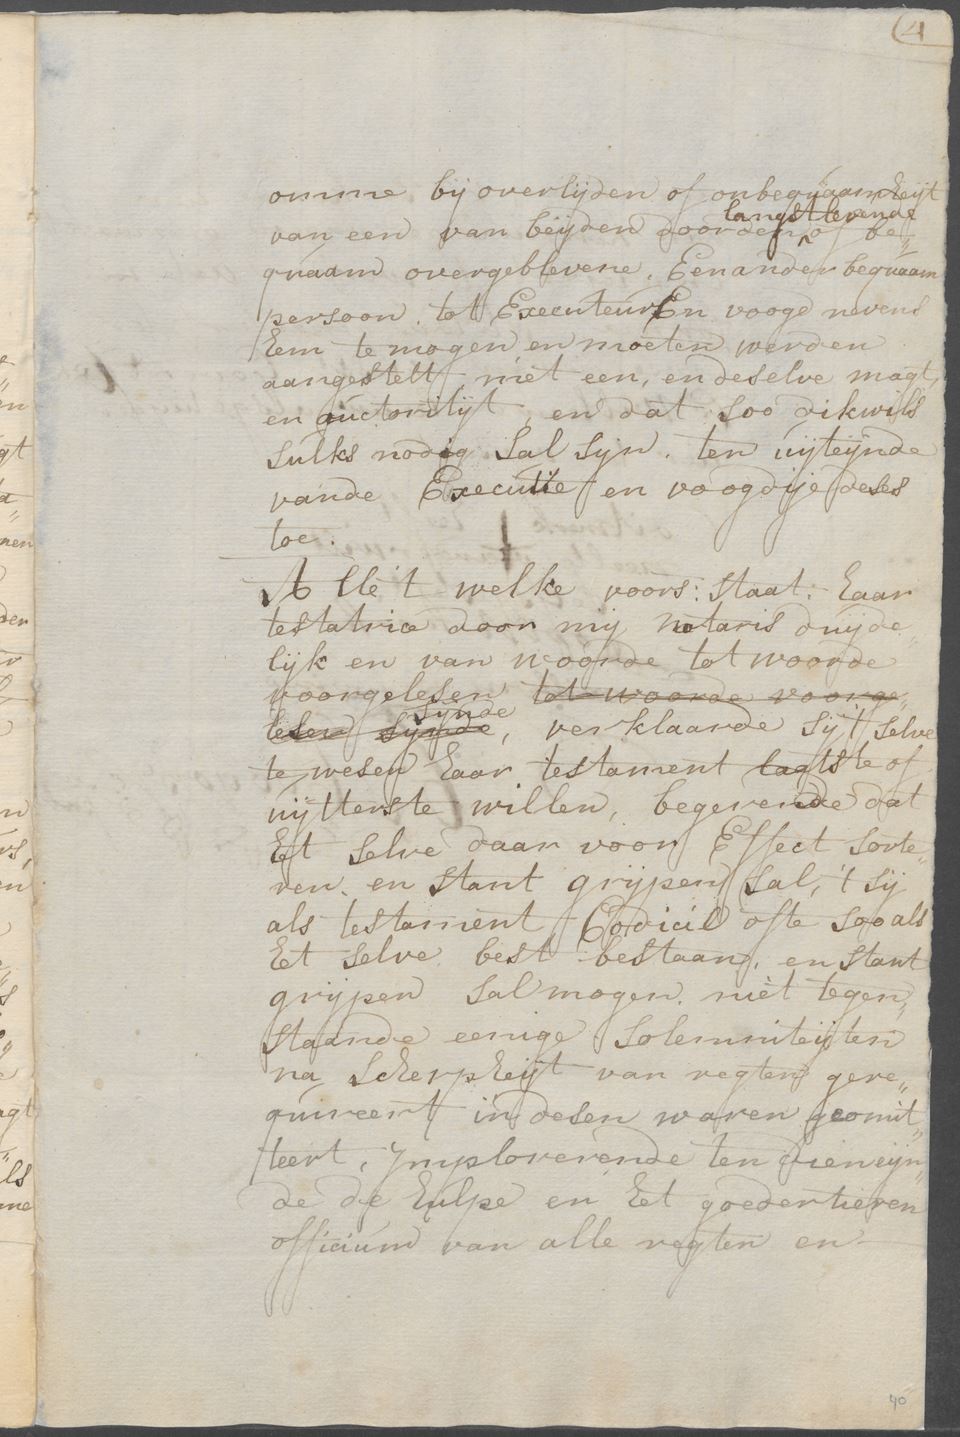 4
omme bij overlijden of onbequaamheijt
van een van beijden door den langstlevende of be„
quaam overgeblevene. Een ander bequaam
persoon tot Executeur En vooge nevens
hem te mogen en moeten werden
aangestelt, met een, en deselve magt,
en auctoritijt, en dat soo dikwils
sulks nodig sal sijn. ten uijteijnde
vande Executie en voogdije deses
toe.
Alle 't welke voors: staat. haar
testatrice door mij notaris duijde„
lijk en van woorde tot woorde
voorgelesen tot woorde voorge„
lesen sijnde sijnde, verklaarde sij 't selve
te wesen haar testament laatste of
uijtterste willen, begerende dat
het selve daar voor Effect sorte„
ren en stant grijpen sal, 't sij
als testament Codicil ofte soo als
het selve best bestaan, en stant
grijpen sal mogen niet tegen„
staande eenige Solemniteijten
na scherpheijt van regten gere„
quireert in desen waren geomit„
teert, Implorerende ten dien eijn„
de de hulpe en het goedertieren
officium van alle regten en
40